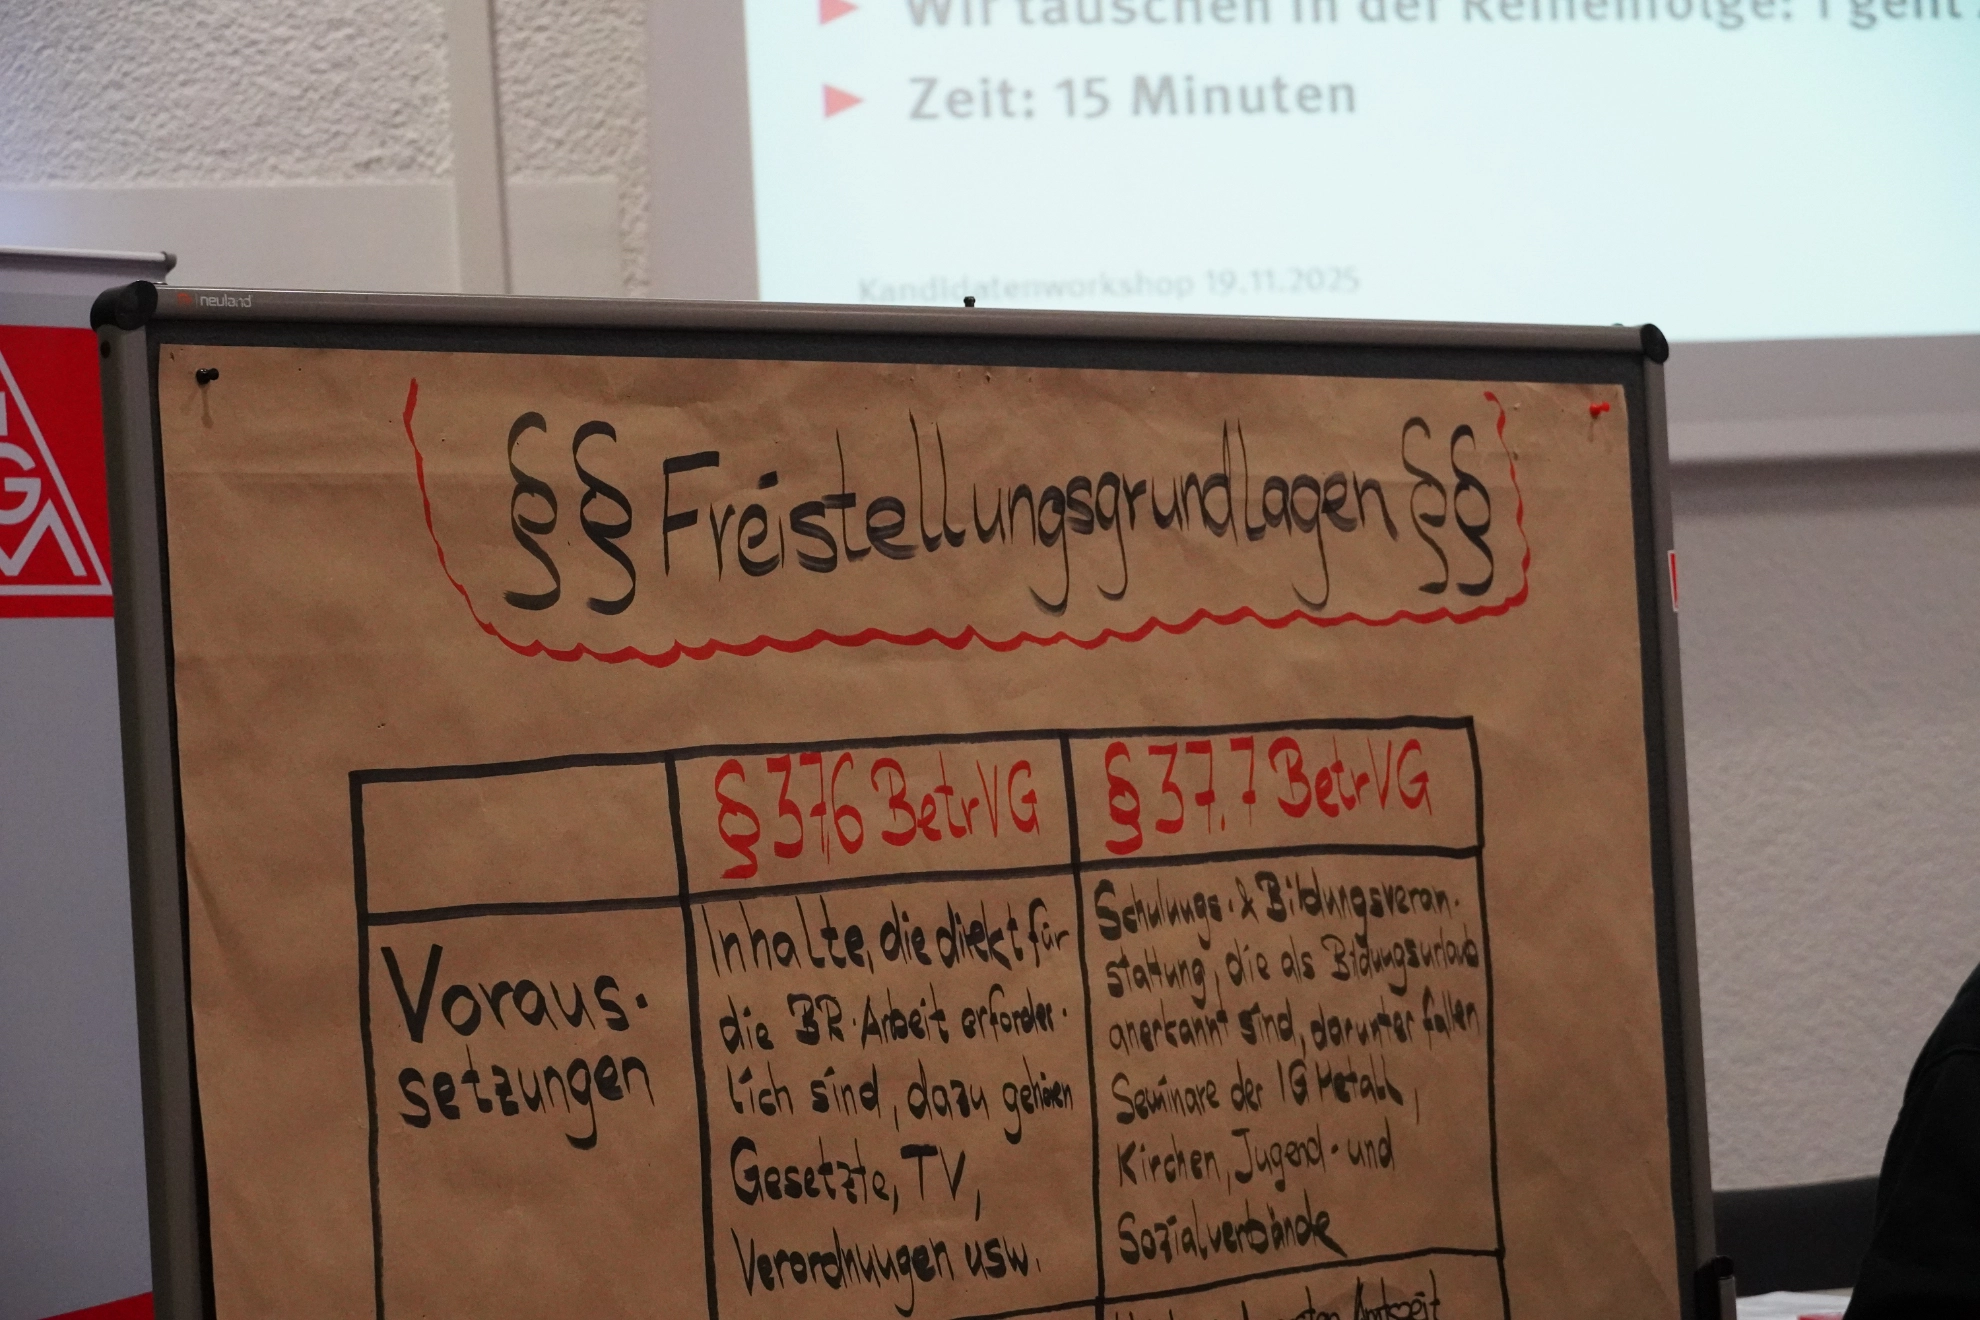 Wir tauschen in der Reihenfolge: 1 geht
Zeit: 15 Minuten
Kandidatenworkshop 19.11.2025
neuland
IGM
§§ Freistellungsgrundlagen §§
§ 37.6 BetrVG
§ 37.7 BetrVG
Voraus-
setzungen
Inhalte, die direkt für
die BR-Arbeit erforder-
lich sind, dazu gehören
Gesetzte, TV,
Verordnungen usw.
Schulungs- & Bildungsveran-
staltung, die als Bildungsurlaub
anerkannt sind, darunter fallen
Seminare der IG Metall,
Kirchen, Jugend- und
Sozialverbände
Amtszeit